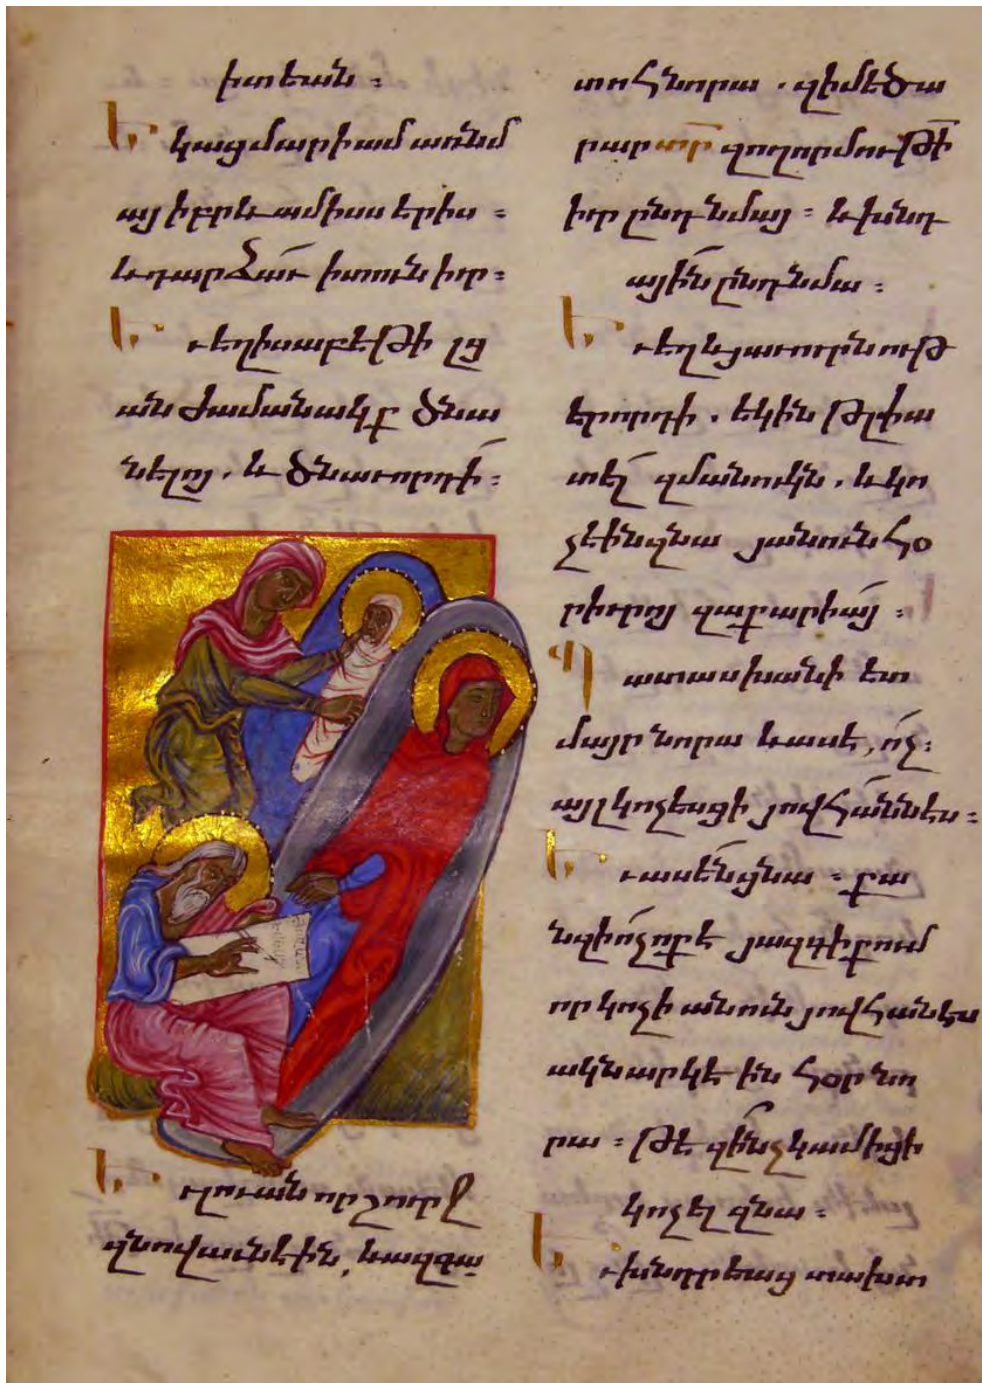 իտեան ։
Եւ կաց մարիամ առ նմ
այ իբրև ամիսս երիս ։
և դարձաւ ի տուն իւր ։
Եւ եղիսաբեթի լց
ան ժամանակք ծնա
նելոյ . և ծնաւ որդի ։
Եւ լուան որ շուրջ
զնովաւն էին, և ազգա
տոհն նորա . զի մեծա
րար տր զողորմութի
իւր ընդ նմայ ։ և խնդ
ային ընդ նմա ։
Եւ եղև յաւուրն ութ
երորդի . եկին թլփա
տել զմանուկն . և կո
չեին զնա յանուն հօ
րիւրոյ զաքարիայ ։
Պատասխանի ետ
մայր նորա և ասէ, ոչ ։
այլ կոչեսցի յովհաննես ։
Եւ ասեն ցնա ։ քա
նզի ոչ ոք է յազգի քում
որ կոչի անուն յովհանես
ակնարկէ ին հօր նո
րա ։ թէ զինչ կամիցի
կոչել զնա ։
Եւ խնդրեաց տախտ